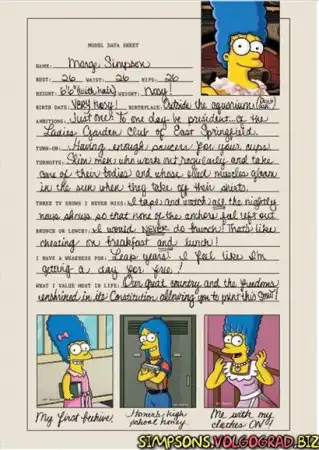 MODEL DATA SHEET
NAME: Marge Simpson
BUST: 26 WAIST: 26 HIPS: 26
HEIGHT: 6'6" (with hair) WEIGHT: Nosy!
BIRTH DATE: VERY nosy! BIRTHPLACE: Outside the aquarium (Dock 5)
AMBITIONS: Just one? to one day be president...of the
Ladies Garden Club of East Springfield.
TURN-ON: Having enough saucers for your cups.
TURNOFFS: Slim men who work out regularly and take
care of their bodies and whose oiled muscles glown
in the sun when they take off their shirts.
THREE TV SHOWS I NEVER MISS: I tape and watch all the nightly
news shows so that none of the anchors feel left out
BRUNCH OR LUNCH?: I would NEVER do brunch! That's like
cheating on breakfast and lunch!
I HAVE A WEAKNESS FOR: Leap years! I feel like I'm
getting a day for free!
WHAT I VALUE MOST IN LIFE: Our great country and the freedoms
enshrined in its Constitution allowing you to print this smut!
My first beehive.
Homer's high
school honey.
Me with my
clothes ON!
SIMPSONS.VOLGOGRAD.BIZ